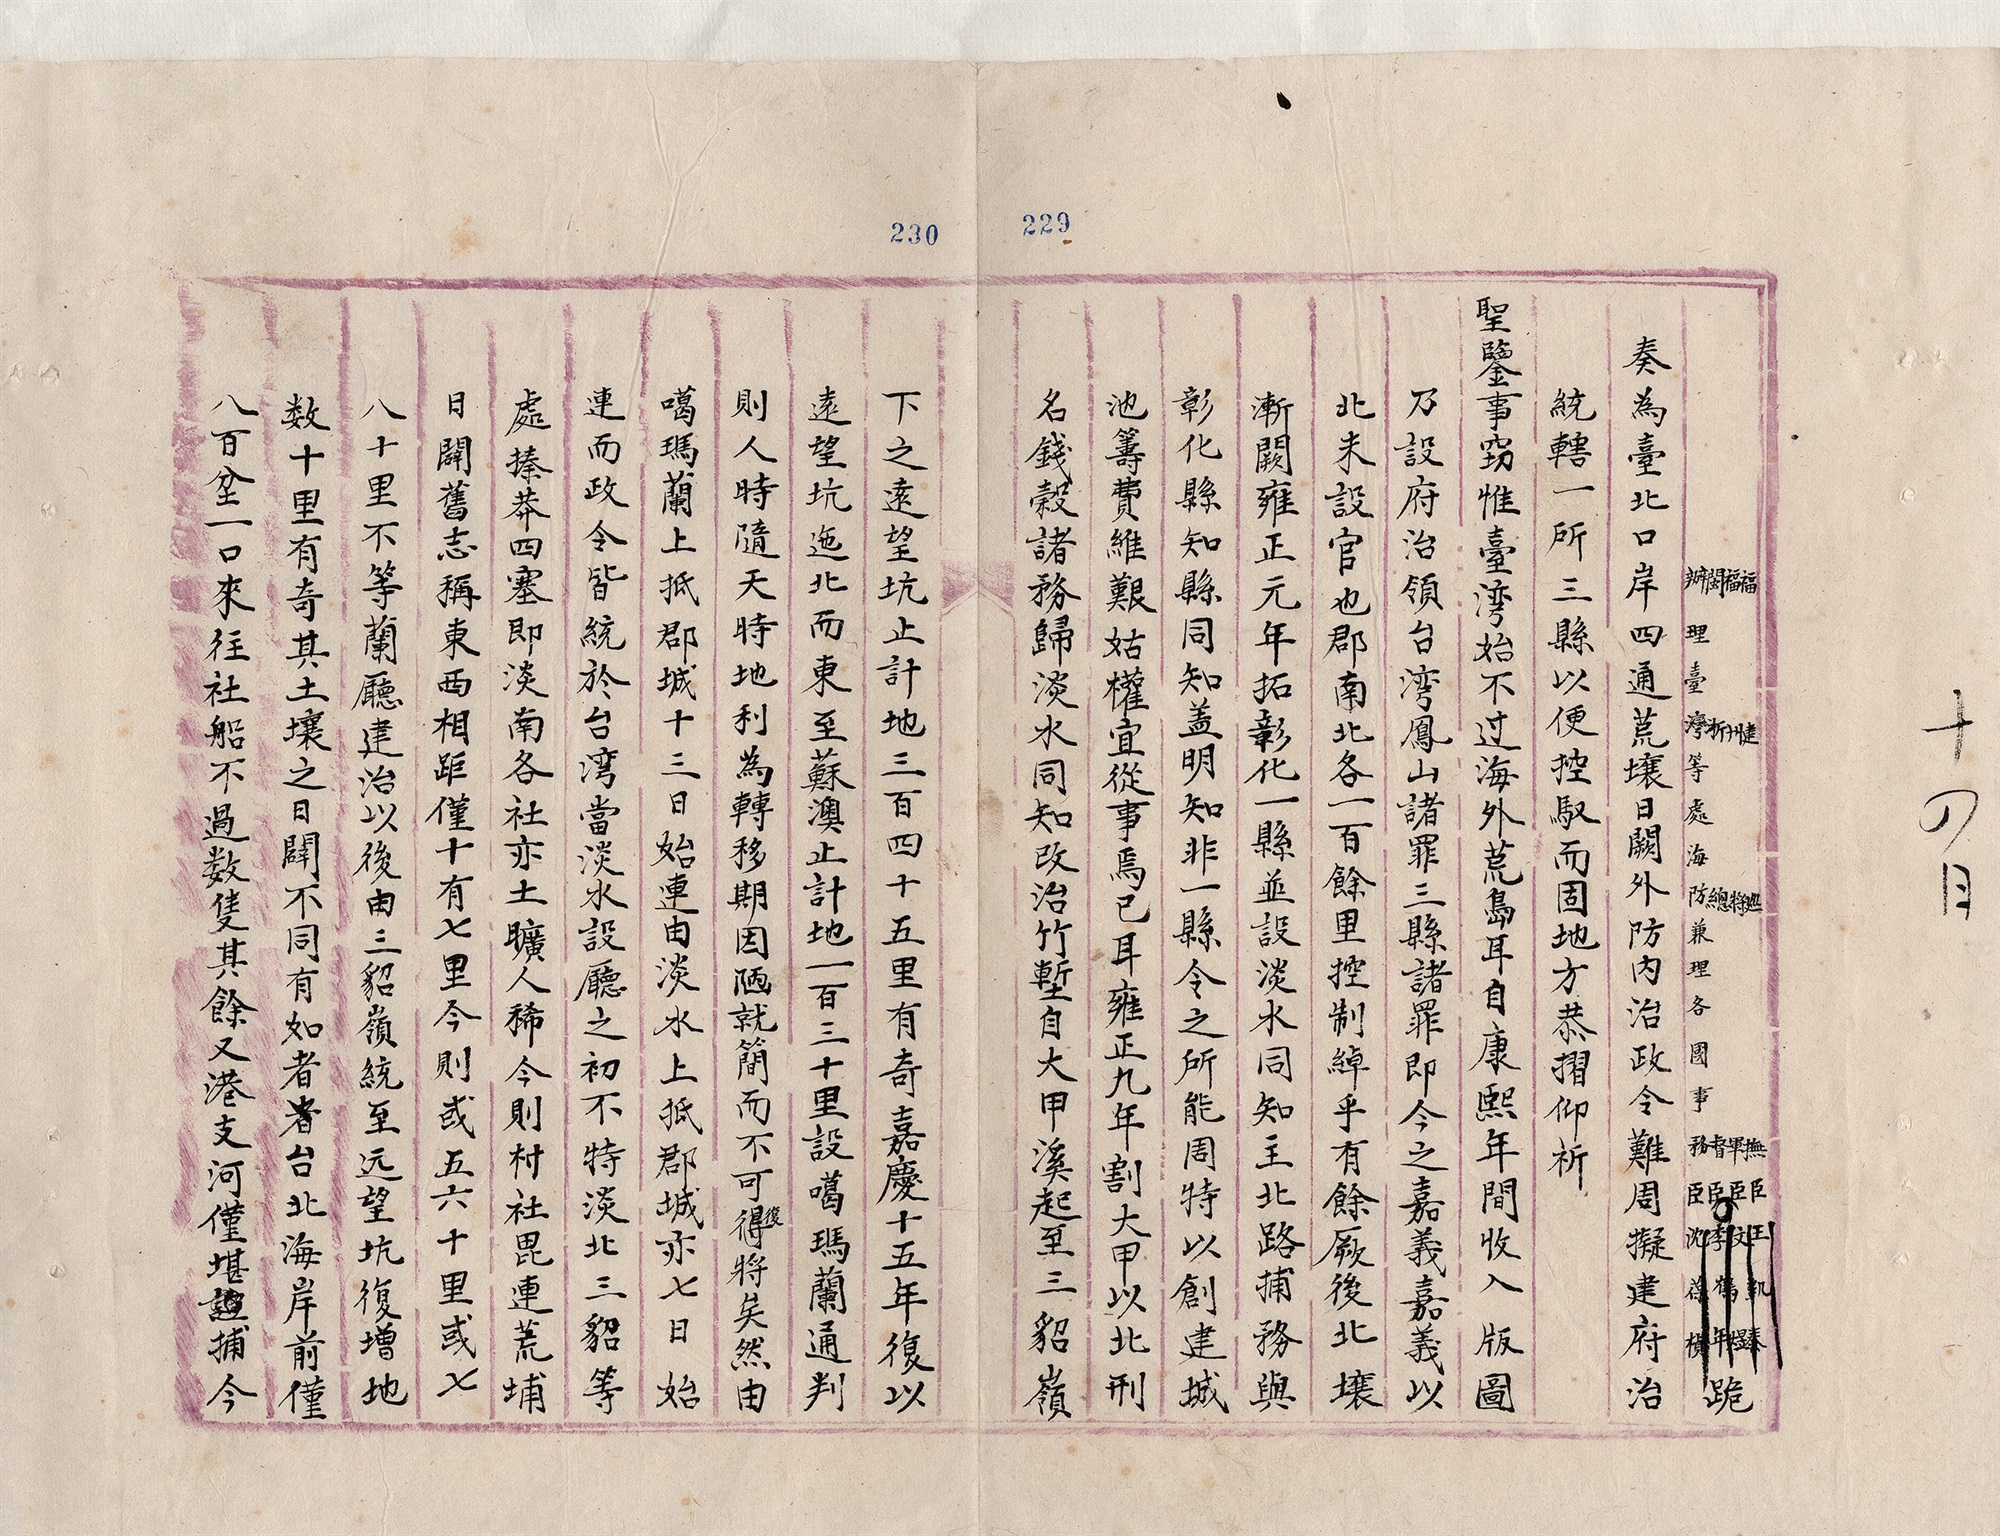 十四月
229
福建巡撫臣王凱泰
福州將軍臣文煜
閩浙總督臣李鶴年
辦理臺灣等處海防兼理各國事務臣沈葆楨
跪
奏為臺北口岸四通荒壤日闢外防內治政令難周擬建府治
統轄一所三縣以便控馭而固地方恭摺仰祈
聖鑒事竊惟臺湾始不过海外荒島耳自康熙年間收入版圖
乃設府治領台湾鳳山諸罪三縣諸罪即今之嘉義嘉義以
北未設官也郡南北各一百餘里控制綽乎有餘厥後北壤
漸闢雍正元年拓彰化一縣並設淡水同知主北路捕務與
彰化縣知縣同知蓋明知非一縣令之所能周特以創建城
池籌費維艱姑權宜從事焉已耳雍正九年割大甲以北刑
名錢穀諸務歸淡水同知改治竹塹自大甲溪起至三貂嶺
230
下之遠望坑止計地三百四十五里有奇嘉慶十五年復以
遠望坑迤北而東至蘇澳止計地一百三十里設噶瑪蘭通判
則人時隨天時地利為轉移期因陋就簡而不可得復將矣然由
噶瑪蘭上抵郡城十三日始連由淡水上抵郡城亦七日始
連而政令皆統於台湾當淡水設廳之初不特淡北三貂等
處榛莽四塞即淡南各社亦土曠人稀今則村社毘連荒埔
日闢舊志稱東西相距僅十有七里今則或五六十里或七
八十里不等蘭廳建治以後由三貂嶺統至远望坑復增地
数十里有奇其土壤之日闢不同有如者者台北海岸前僅
八百坌一口來往社船不過数隻其餘又港支河僅堪捕今